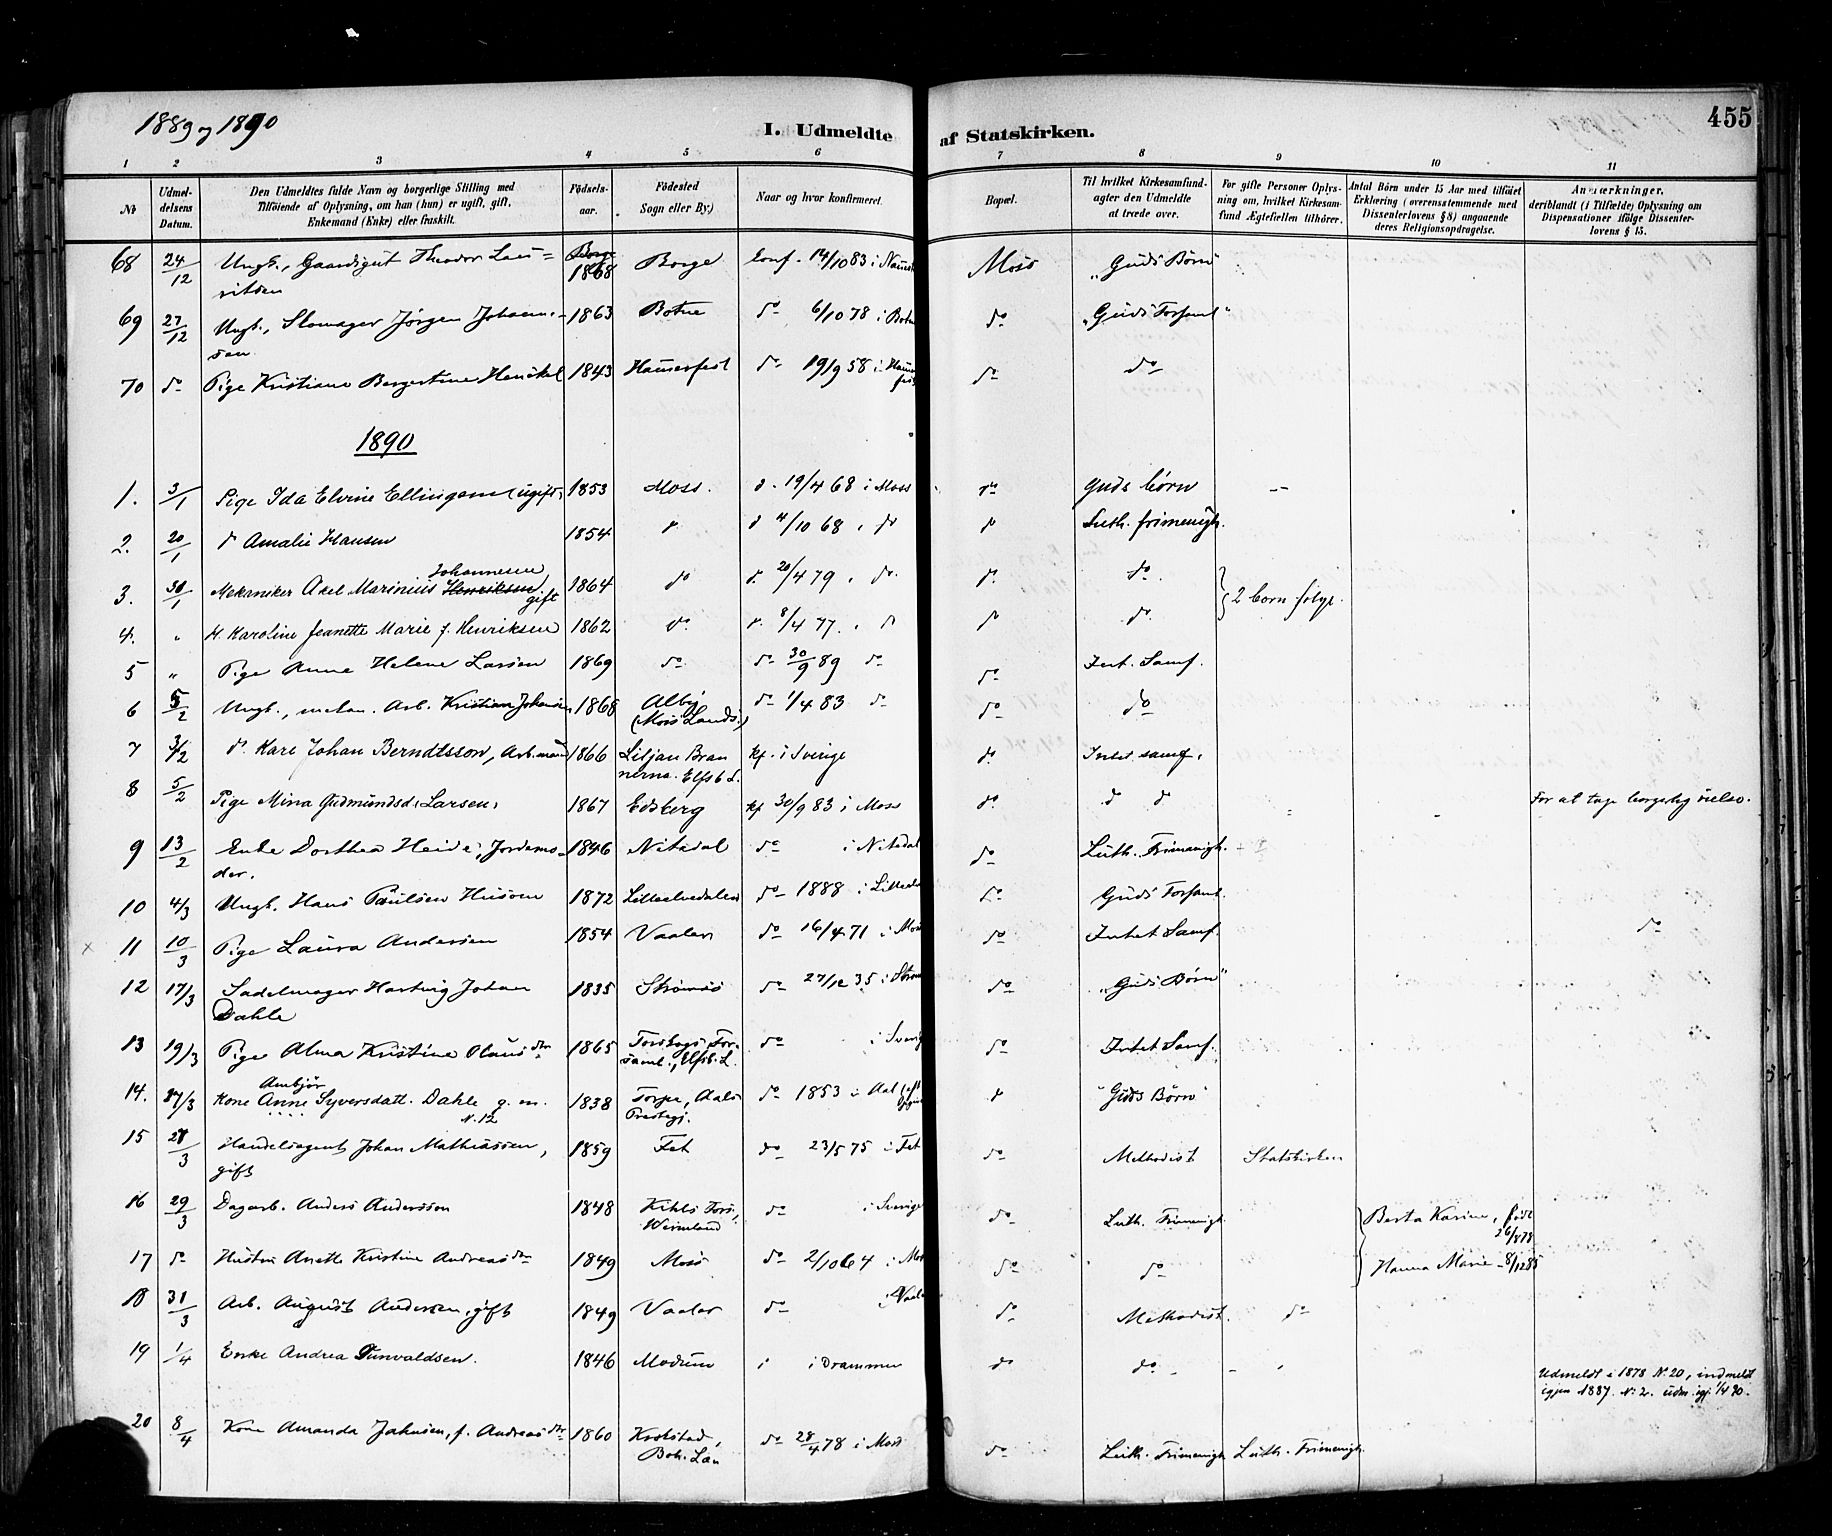 1889 og 1890
I. Udmeldte af Statskirken.
455
1 2 3 4 5 6 7 8 9 10 11
No
Udmeldelsens Datum.
Den Udmeldtes fulde Navn og borgerlige Stilling med Tilføiende af Oplysning, om han (hun) er ugift, gift, Enkemand (Enke) eller fraskilt.
Fødselsaar.
Fødested Sogn eller By.)
Naar og hvor konfirmeret.
Bopæl.
Til hvilket Kirkesamfund agter den Udmeldte at træde over.
For gifte Personer Oplysning om, hvilket Kirkesamfund Ægtefællen tilhører.
Antal Børn under 15 Aar med tilføiet Erklæring (overensstemmende med Dissenterlovens § 8) angaaende deres Religionsopdragelse.
Anmærkninger, deriblandt (i Tilfælde) Oplysning om Dispensationer ifølge Dissenterlovens § 15.
68 24/12 Ungk., Gaardsgut Theodor Lauritsen 1868 Borge conf. 14/10 83 i Moss „Guds Børn"
69 27/12 Ungk., Slomager Jørgen Johannessen 1863 Botne do 6/10 78 i Botne do „Guds Forsaml"
70 do Pige Kristiane Bergertine Henckel 1843 Hammerfest do 19/9 58 i Hammerfest do do
1890
1. 3/1 Pige Ida Elvine Ellingsen (ugift) 1853 Moss. d. 19/4 68 i Moss do Guds børn —
2. 20/1 do Amalie Hansen 1854 do d 4/10 68 " do do Luth. frimenigh.
3. 30/1 Mekaniker Axel Marinius Henriksen Johannesen gift 1864 do d. 20/4 79 " do. do. do. } 2 born følge.
4. " H. Karoline Jeanette Marie f. Henriksen 1862 do. d. 8/4 77. " do do do.
5 " Pige Anne Helene Larsen 1869 do do 30/9 89 do do Int. Samf.
6 5/2 Ungk., mekan. Arb. Kristian Johansen 1868 Alby (Moss Lands.) do 1/4 83 do do do
7 3/2 do. Karl Johan Berndtsson, Arb.mand 1866 Liljan Brannerna. Elfsb L. kf. i Sverige do. Intet samf.
8 5/2 Pige Mina Gudmundsd. Larsen 1867 Edsberg kf 30/9 83 i Moss do. d d For at tage borgerlig vielse.
9 13/2 Enke Dorthea Heide, Jordemoder. 1846 Nitedal do i Nitedal do Luth. Frimenigh.
10 4/3 Ungk. Hans Paulsen Husom 1872 Lilleelvedalen do 1888 i Lilleel do Guds Forsaml.
11 10/3 Pige Laura Andersen 1854 Vaaler do 16/4 71 i Moss do Intet Samf. do
12 17/3 Sadelmager Hartvig Johan Dahle 1835 Strømsø do 27/12 35 i Strøm do „Guds Børn"
13 19/3 Pige Alma Kristine Olausdtr 1865 Torsbogs Forsaml., Elfsb. L. do i Sverig do Intet Samf.
14. 27/3 Kone Anne Ambjør Syversdatt. Dahle g. m. N. 12 1838 Torpe, Aals Prestegj. do 1853 i Aal do "Guds Børn"
15 28/3 Handelsagent Johan Mathiassen, gift 1859 Fet do 23/5 75 i Fet do Methodist Statskirken
16 29/3 Dagarb. Anders Andersson 1848 Kihls Fors., Wermland do i Sverige do Luth. Frimenigh. } Berta Karine, født 26/8 78
17 do Hustru Anette Kristine Andreasdtr 1849 Moss do 2/10 64 i Mos do do Hanna Marie - 8/12 85
18 31/3 Arb. August Andersen, gift 1849 Vaaler do i Vaaler do Methodist. do
19 1/4 Enke Andrea Gunvaldsen. 1846 Modum i i Drammen do do Udmeldt i 1878 N. 20, indmeldt igjen 1887. N. 2. udm. igj. 1/4 90.
20 8/4 Kone Amanda Johnsen, f. Andreasdtr 1860 Krokstad, Boh. Län do 28/4 78 i Moss do Luth. Frimenigh Luth. Frimenigh.